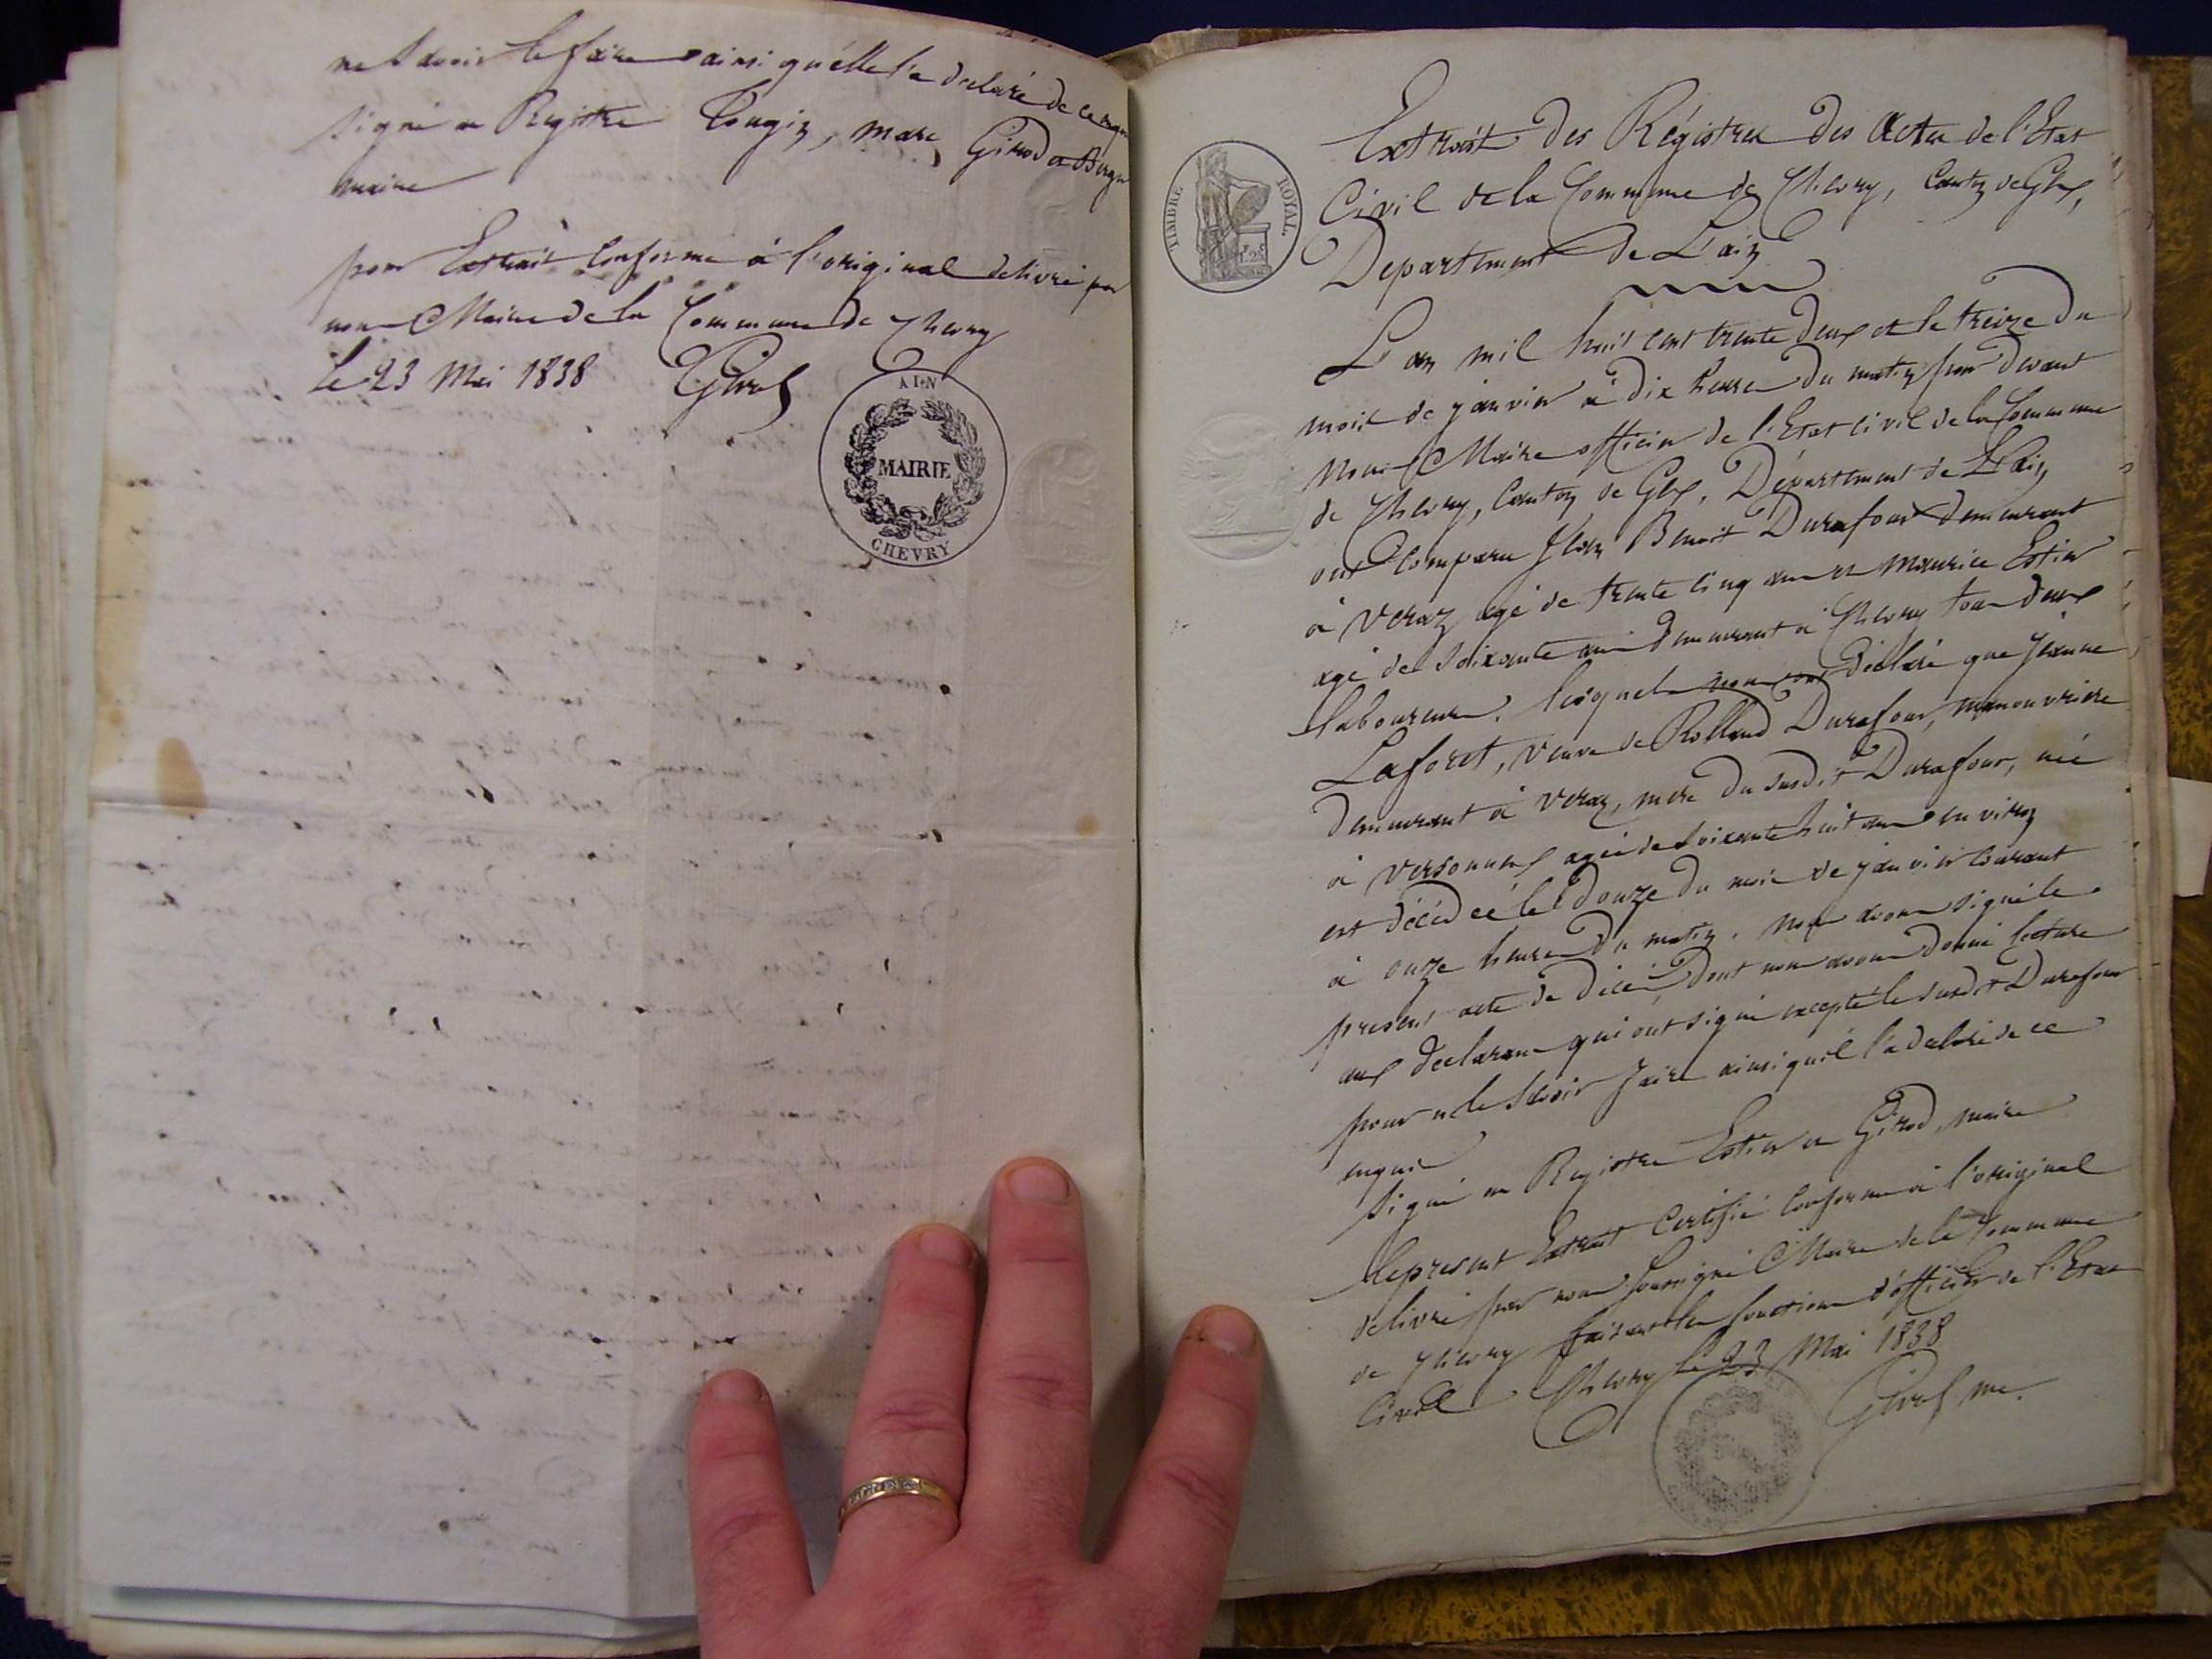 ne Savoir le faire ainsi qu'elle l'a déclaré de ce enquis
Signé au Registre Tougin, Marc, Girod
maire
pour Extrait Conforme à l'original délivré par
nous Maire de la Commune de Chevry
le 23 Mai 1838 Girod
AIN
MAIRIE
CHEVRY
Extrait des Régistres des Actes de l'Etat
Civil de la Commune de Chevry, Canton de Gex,
Département de L'ain
TIMBRE ROYAL
L'an mil huit cent trente deux et le treize du
mois de janvier à dix heures du matin par devant
Nous Maire officier de l'Etat civil de la Commune
de Chevry, Canton de Gex, Département de L'Ain
ont Comparu Jean Benoit Durafour demeurant
à Veraz agé de trente cinq ans et Maurice Estier
agé de Soixante ans demeurant à Chevry tous deux
laboureurs. lesquels nous ont déclaré que Jeanne
Laforet, veuve de Rolland Durafour, manouvrière
demeurant à Veraz, mere du susdit Durafour, née
à Versonnex agée de Soixante huit ans environ
est décédée le douze du mois de janvier Courant
à onze heures du matin. Nous avons signé le
present acte de décès, dont nous avons donné lecture
aux declarans qui ont signé excepté le susdit Durafour
pour ne le Savoir faire ainsi qu'il l'a declaré de ce
enquis
Signé au Registre Estier et Girod, maire
le present Extrait Certifié Conforme à l'original
délivré par nous Soussigné Maire de la Commune
de Chevry faisant les fonctions d'officier de l'Etat
Civil Chevry le 23 Mai 1838
Girod me.